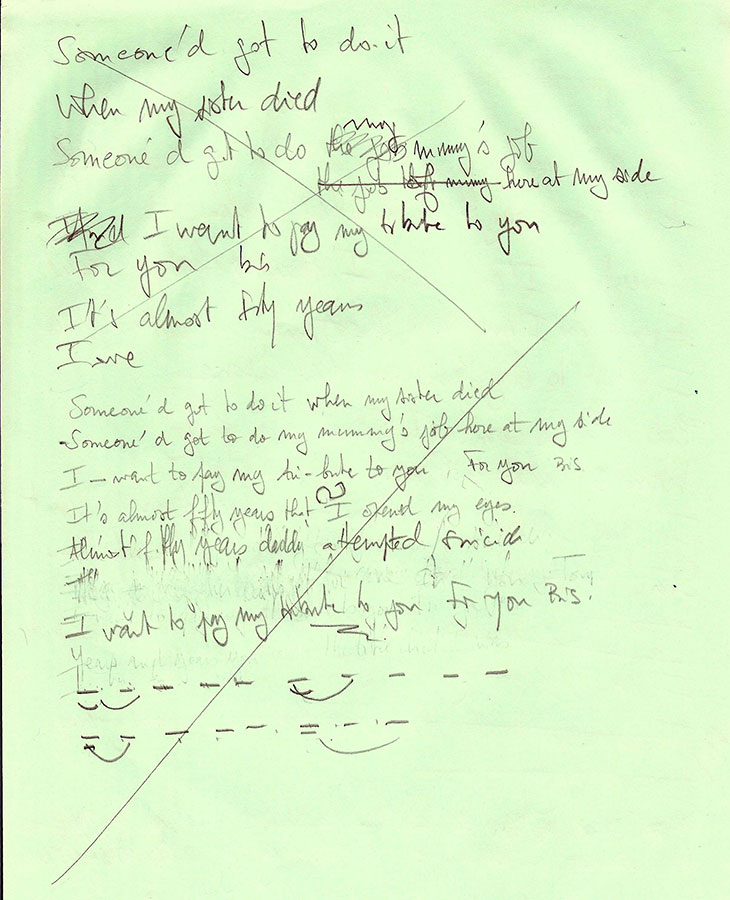 Someone'd got to do it
When my sister died
Someone'd got to do the job my mummy's job
the job of my mummy here at my side
And I want to pay my tribute to you
For you bis
It's almost fifty years
I we
Someone'd got to do it when my sister died
Someone'd got to do my mummy's job here at my side
I - want to pay my tri-bute to you. For you Bis
It's almost fifty years that I opened my eyes.
Almost fifty years daddy attempted suicide
I want to pay my tribute to you For you Bis.
Years and years